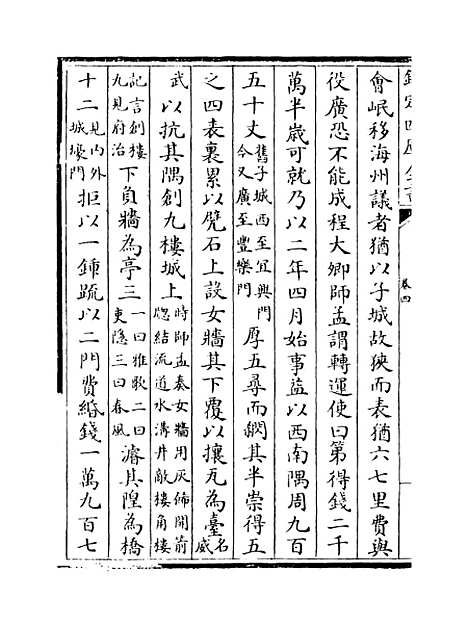 欽定四庫全書
卷四
會岷移海州議者猶以子城故狹而表猶六七里費與
役廣恐不能成程大卿師孟謂轉運使曰第得錢二千
萬半嵗可就乃以二年四月始事益以西南隅周九百
五十丈舊子城西至宜興門今又廣至豐樂門厚五尋而網其半崇得五
之四表裏累以甓石上設女牆其下覆以攘瓦為臺名威
武以抗其隅創九樓城上時師孟奏女牆用灰飾開箭窓結流道水溝井敵樓角樓
記言創樓九見府治下負牆為亭三一曰雅歌二曰吏隱三曰春風濬其隍為橋
十二見内外城壕門拒以一鍾䟽以二門費緡錢一萬九百七